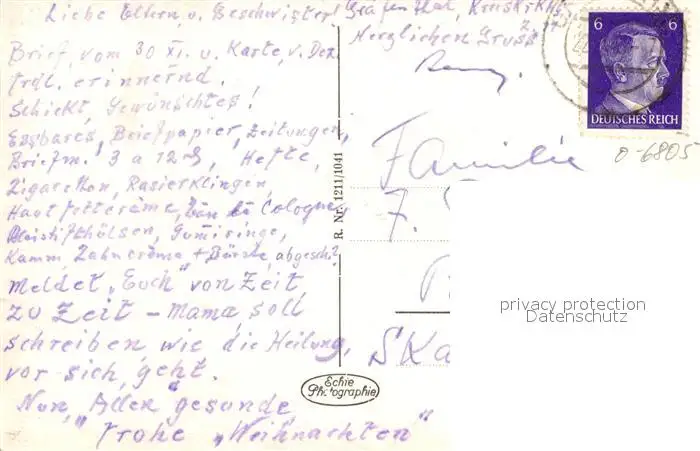 Liebe Eltern, u. Geschwister!
Brief, vom 30 XI. u. Karte, v. Dez.
frdl. erinnernd.
Schickt, Gewünschtes!
Essbares, Briefpapier, Zeitungen,
Briefm. 3 a 12 Hefte,
Zigaretten, Rasierklingen,
Hautfettcreme, Cologne,
Bleistifthülsen, Gumiringe,
Kamm Zahncreme + Bürste, abgesch?
Meldet "Euch" von Zeit
zu Zeit - Mama, soll
schreiben wie die Heilung,
vor sich, geht.
Nun, "Allen" gesunde,
frohe "Weihnachten"
Gräfenthal,
Herzlichen Gruss
R. Nr. 1211/1041
Echte Photographie
6 6
DEUTSCHES REICH
0-6805
Familie
F.
privacy protection
Datenschutz